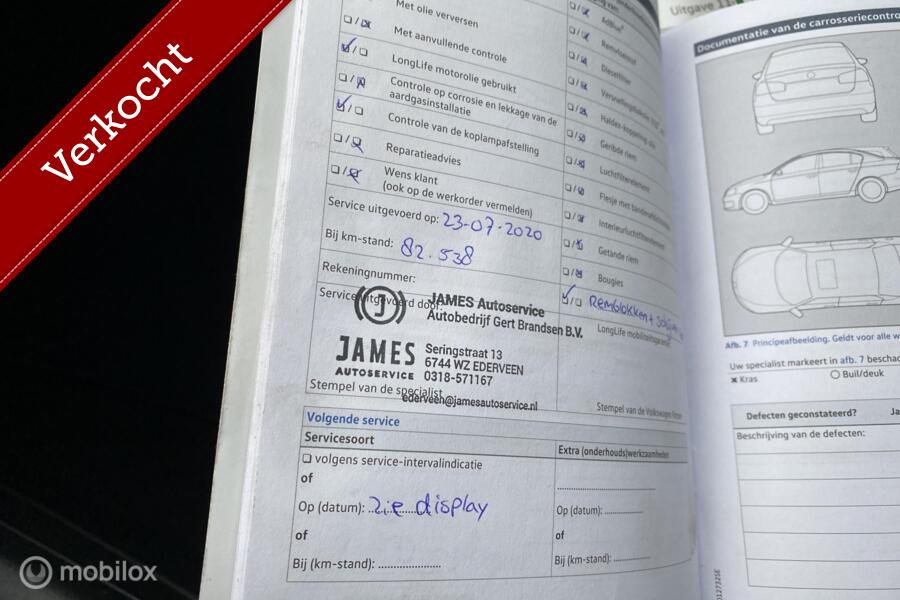 Verkocht
Met olie verversen
Met aanvullende controle
LongLife motorolie gebruikt
Controle op corrosie en lekkage van de
aardgasinstallatie
Controle van de koplampafstelling
Reparatieadvies
Wens klant
(ook op de werkorder vermelden)
Service uitgevoerd op: 23-07-2020
Bij km-stand: 82.538
Rekeningnummer:
Service uitgevoerd door:
JAMES Autoservice
Autobedrijf Gert Brandsen B.V.
JAMES
AUTOSERVICE
Seringstraat 13
6744 WZ EDERVEEN
0318-571167
Stempel van de specialist
ederveen@jamesautoservice.nl
AdBlue®
Remvloeistof
Dieselfilter
Geribde riem
Luchtfilterelement
Getande riem
Bougies
Remblokken +
LongLife mobiliteitsgarantie
Stempel van de Volkswagen
Volgende service
Servicesoort
volgens service-intervalindicatie
of
Op (datum): zie display
of
Bij (km-stand):
Extra (onderhouds)werkzaamheden
Op (datum):
of
Bij (km-stand):
Uitgave 11
Documentatie van de carrosseriecontro
Afb. 7 Principeafbeelding. Geldt voor alle w
Uw specialist markeert in afb. 7 bescha
Kras
Buil/deuk
Defecten geconstateerd?
Ja
Beschrijving van de defecten:
mobilox